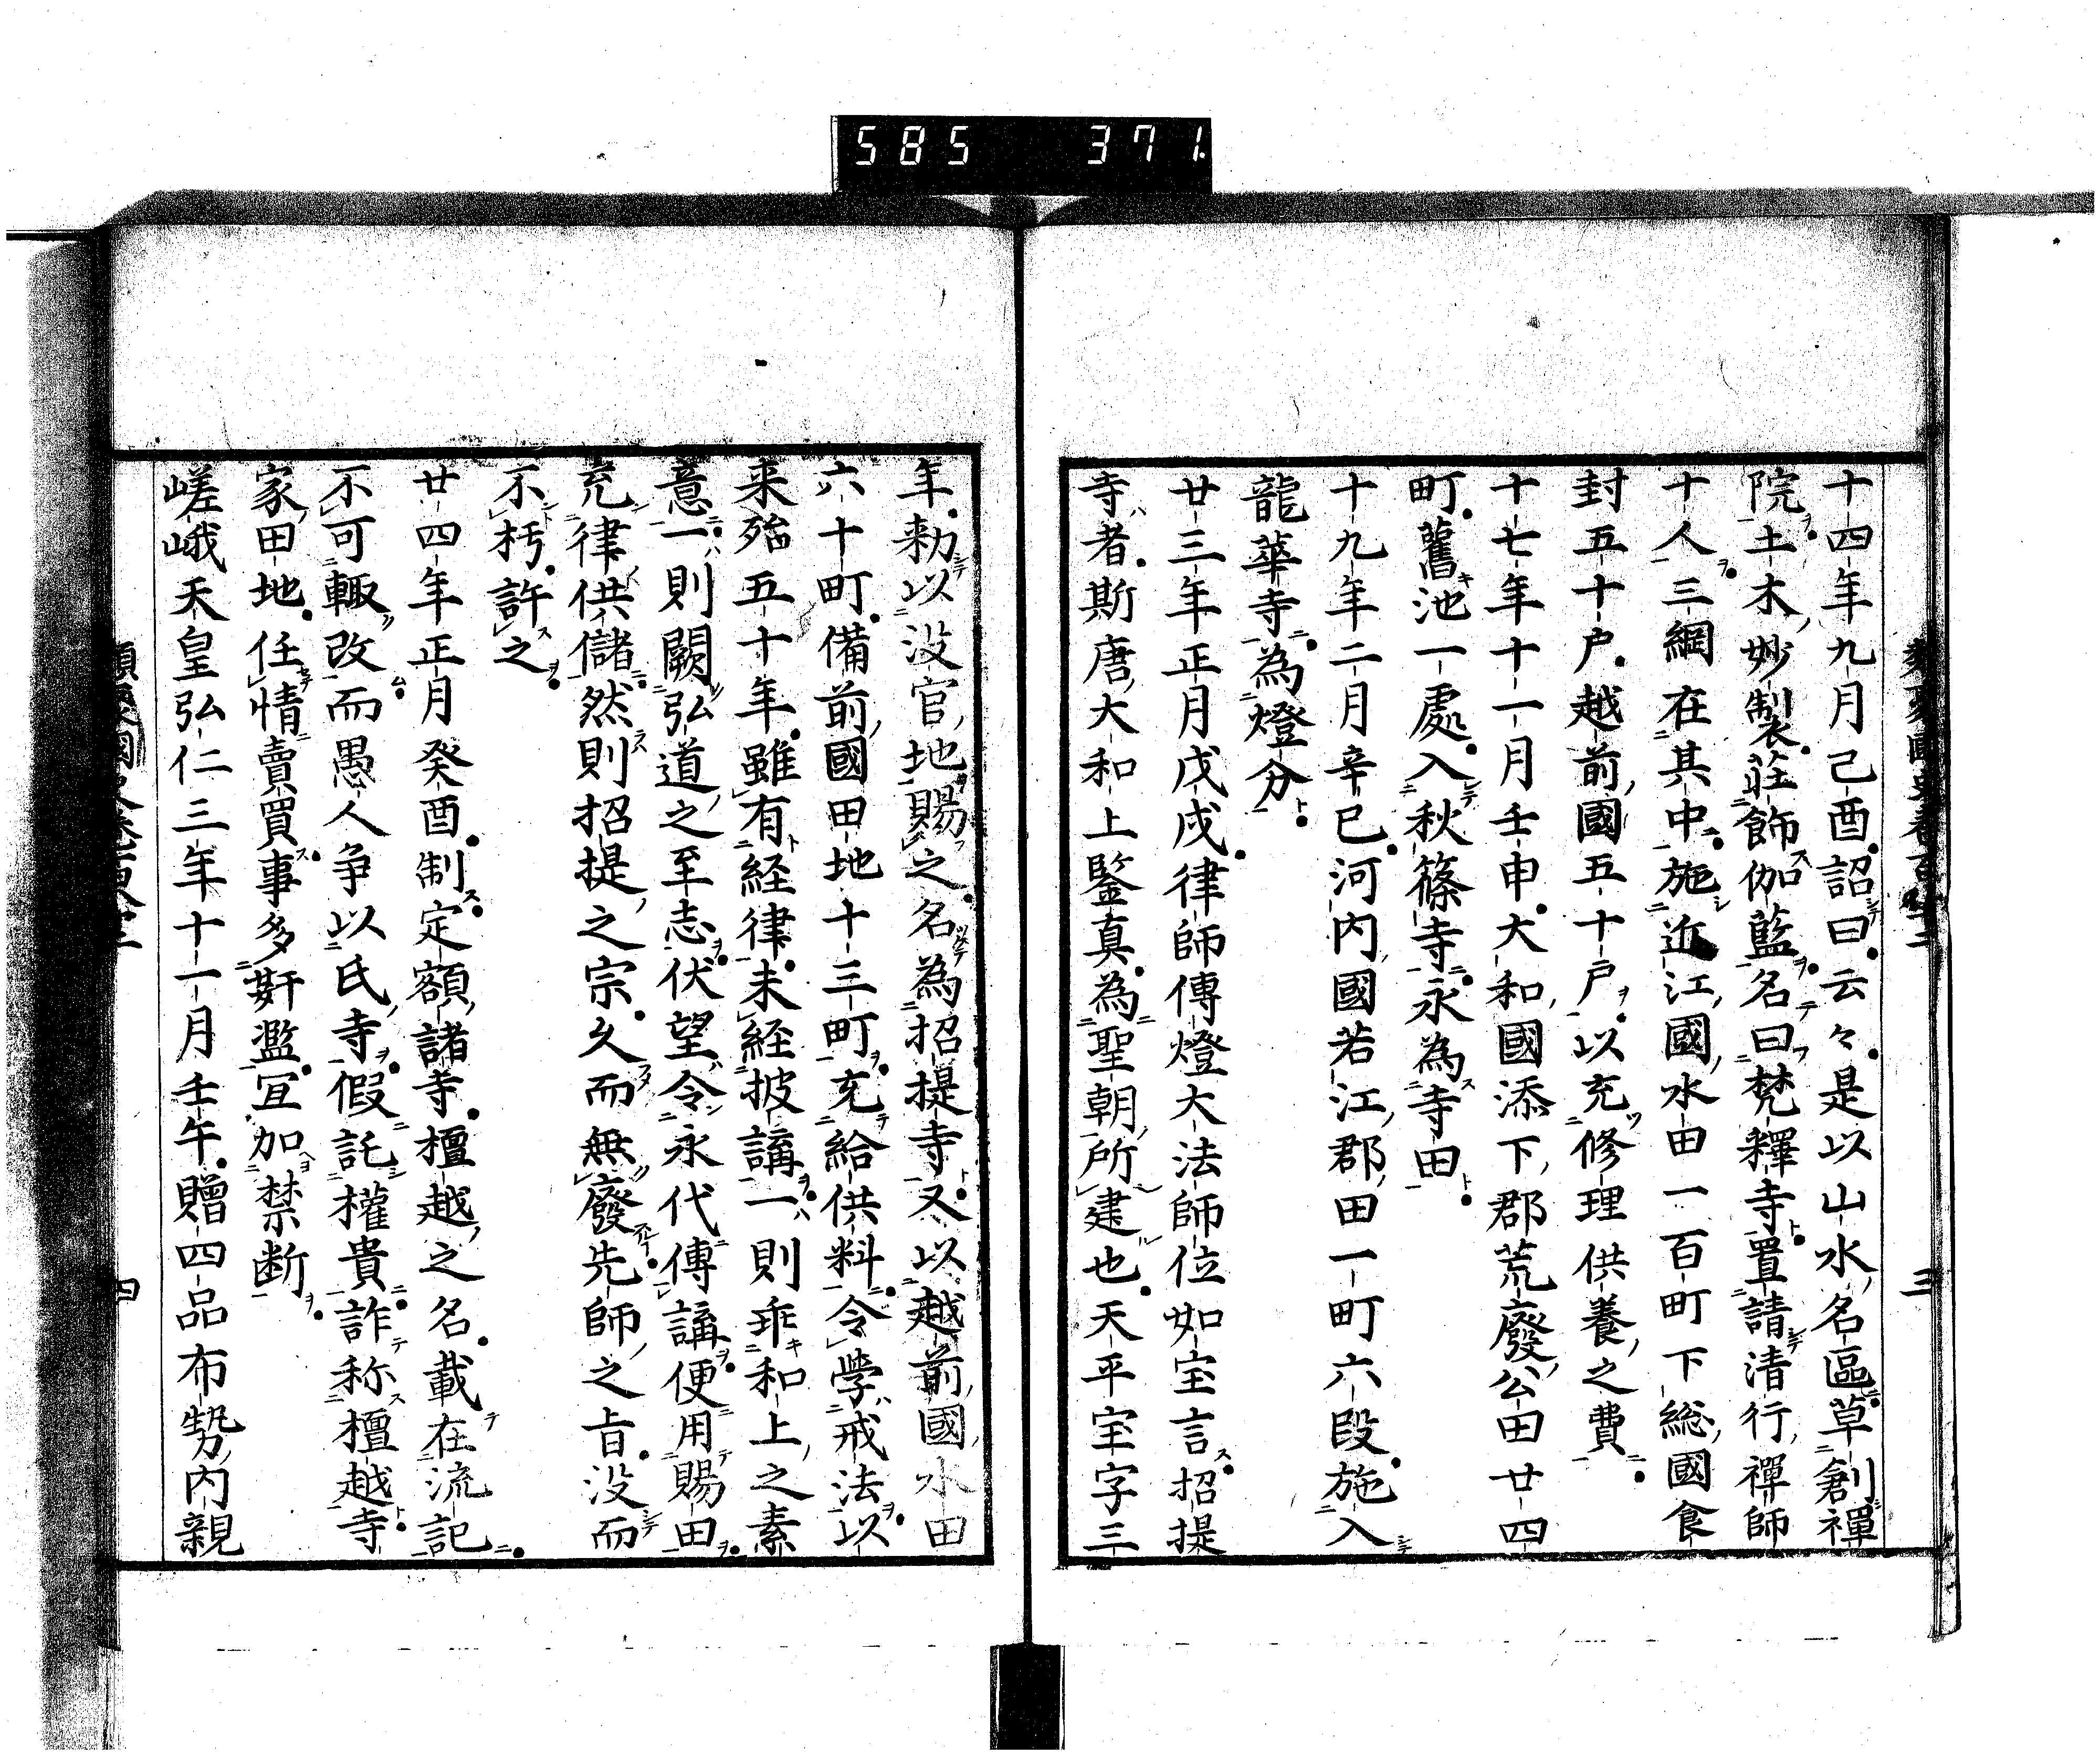 585 371.
十四年九月己酉詔曰云々是以山水名區草創禪
院土木妙製莊飾伽藍名曰梵釋寺置請清行禪師
十人三綱在其中施近江國水田一百町下総國食
封五十戸越前國五十戸以充修理供養之費
十七年十一月壬申大和國添下郡荒廢公田廿四
町舊池一處入秋篠寺永為寺田
十九年二月辛巳河内國若江郡田一町六段施入
龍華寺為燈分
廿三年正月戊戌律師傳燈大法師位如宝言招提
寺者斯唐大和上鑒真為聖朝所建也天平宝字三
年勅以没官地賜之名為招提寺又以越前國水田
六十町備前國田地十三町充給供料令學戒法以
来殆五十年雖有経律未経披講一則乖和上之素
意一則闕弘道之至志伏望令永代傳講便用賜田
充律供儲然則招提之宗久而無廢先師之旨没而
不朽許之
廿四年正月癸酉制定額諸寺檀越之名載在流記
不可輙改而愚人争以氏寺假託權貴詐称檀越寺
家田地任情賣買事多姧濫宜加禁断
嵯峨天皇弘仁三年十一月壬午贈四品布㔟内親
四